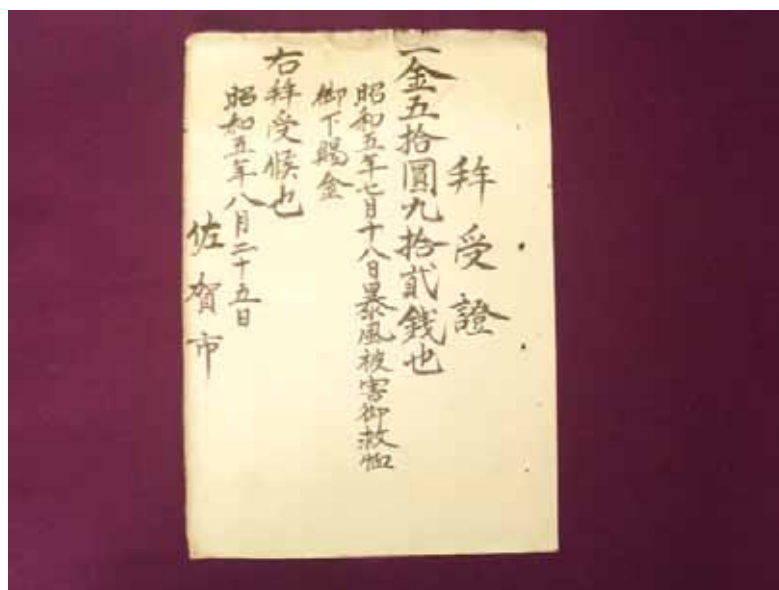 拝受證
一金五拾圓九拾貳銭也
昭和五年七月十八日暴風被害御救恤
御下賜金
右拝受候也
昭和五年八月二十五日
佐賀市